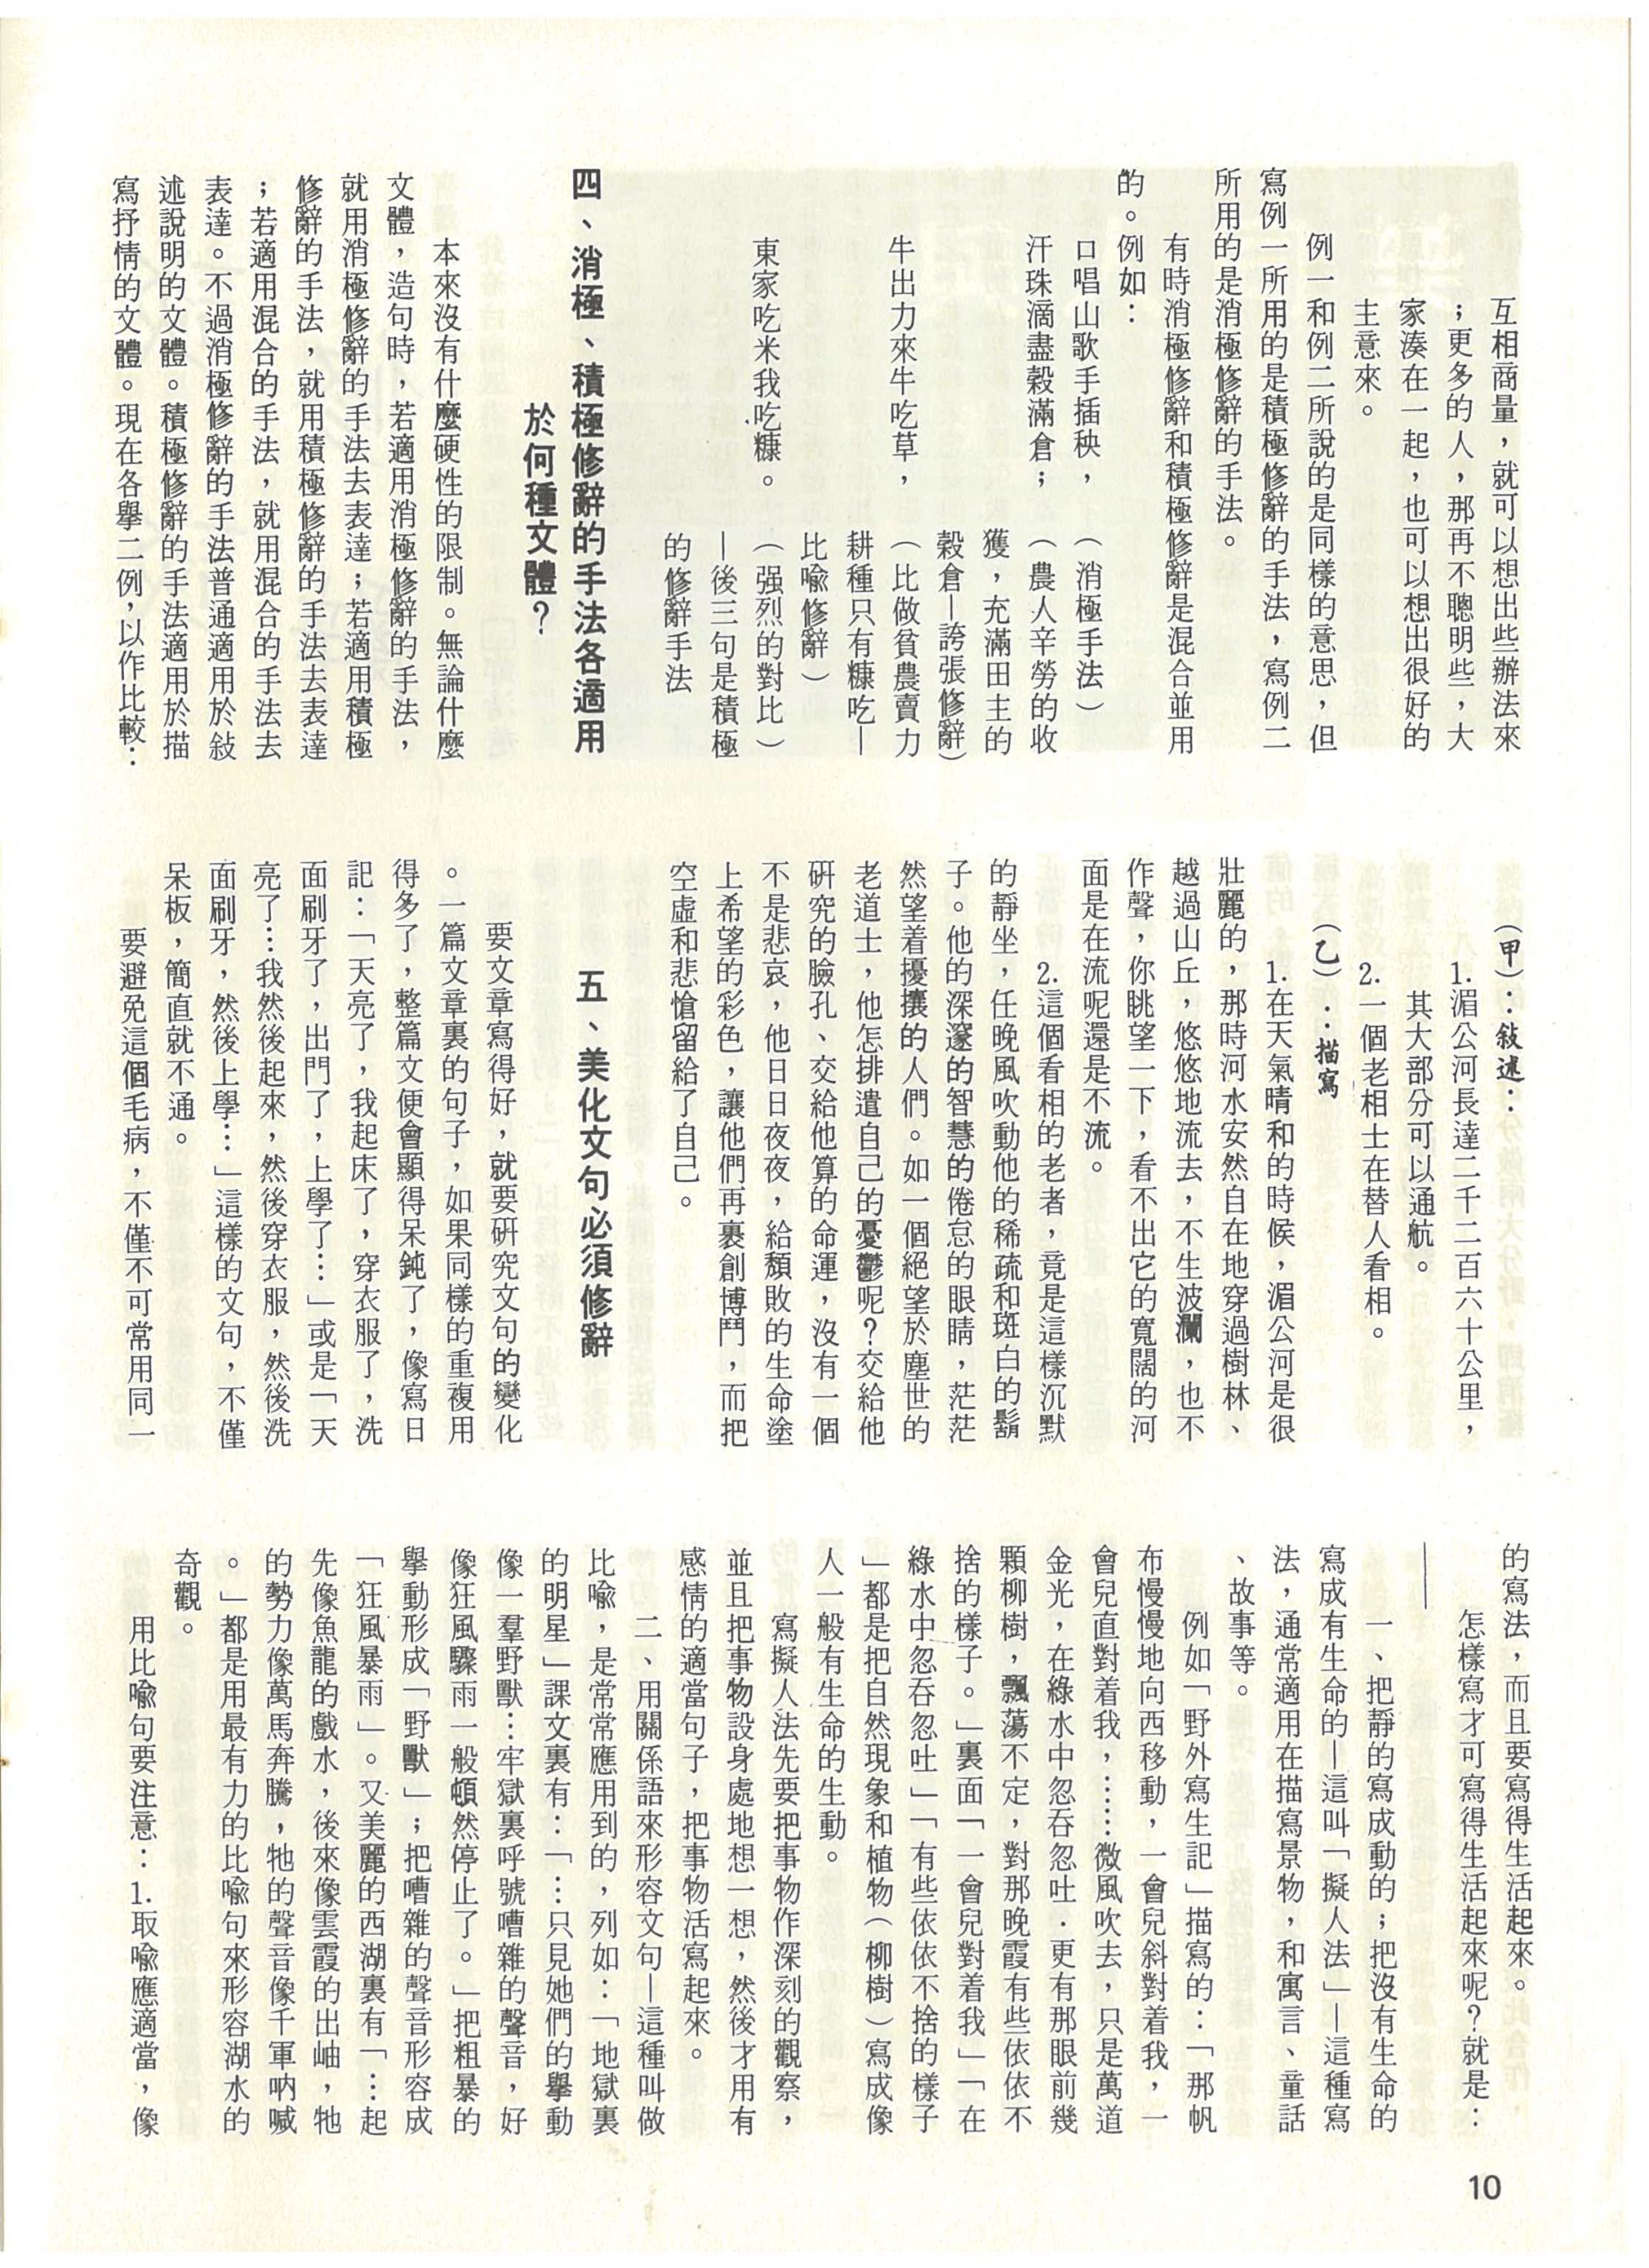 互相商量，就可以想出些辦法來
；更多的人，那再不聰明些，大
家湊在一起，也可以想出很好的
主意來。
例一和例二所說的是同樣的意思，但
寫例一所用的是積極修辭的手法，寫例二
所用的是消極修辭的手法。
有時消極修辭和積極修辭是混合並用
的。例如：
口唱山歌手插秧，（消極手法）
汗珠滴盡穀滿倉；（農人辛勞的收
獲，充滿田主的
穀倉—誇張修辭）
牛出力來牛吃草，（比做貧農賣力
耕種只有糠吃—
比喩修辭）
東家吃米我吃糠。（强烈的對比）
—後三句是積極
的修辭手法
四、消極、積極修辭的手法各適用
於何種文體？
本來沒有什麼硬性的限制。無論什麼
文體，造句時，若適用消極修辭的手法，
就用消極修辭的手法去表達；若適用積極
修辭的手法，就用積極修辭的手法去表達
；若適用混合的手法，就用混合的手法去
表達。不過消極修辭的手法普通適用於敍
述說明的文體。積極修辭的手法適用於描
寫抒情的文體。現在各擧二例，以作比較：
（甲）：敍述：
1.湄公河長達二千二百六十公里，
其大部分可以通航。
2.一個老相士在替人看相。
（乙）：描寫
1.在天氣晴和的時候，湄公河是很
壯麗的，那時河水安然自在地穿過樹林、
越過山丘，悠悠地流去，不生波瀾，也不
作聲，你眺望一下，看不出它的寬闊的河
面是在流呢還是不流。
2.這個看相的老者，竟是這樣沉默
的靜坐，任晚風吹動他的稀疏和斑白的鬍
子。他的深邃的智慧的倦怠的眼睛，茫茫
然望着擾攘的人們。如一個絕望於塵世的
老道士，他怎排遣自己的憂鬱呢？交給他
硏究的臉孔、交給他算的命運，沒有一個
不是悲哀，他日日夜夜，給頹敗的生命塗
上希望的彩色，讓他們再裹創博鬥，而把
空虛和悲愴留給了自己。
五、美化文句必須修辭
要文章寫得好，就要硏究文句的變化
。一篇文章裏的句子，如果同樣的重複用
得多了，整篇文便會顯得呆鈍了，像寫日
記：「天亮了，我起床了，穿衣服了，洗
面刷牙了，出門了，上學了…」或是「天
亮了…我然後起來，然後穿衣服，然後洗
面刷牙，然後上學…」這樣的文句，不僅
呆板，簡直就不通。
要避免這個毛病，不僅不可常用同一
的寫法，而且要寫得生活起來。
怎樣寫才可寫得生活起來呢？就是：
——
一、把靜的寫成動的；把沒有生命的
寫成有生命的—這叫「擬人法」—這種寫
法，通常適用在描寫景物，和寓言、童話
、故事等。
例如「野外寫生記」描寫的：「那帆
布慢慢地向西移動，一會兒斜對着我，一
會兒直對着我，……微風吹去，只是萬道
金光，在綠水中忽吞忽吐．更有那眼前幾
顆柳樹，飄蕩不定，對那晚霞有些依依不
捨的樣子。」裏面「一會兒對着我」「在
綠水中忽吞忽吐」「有些依依不捨的樣子
」都是把自然現象和植物（柳樹）寫成像
人一般有生命的生動。
寫擬人法先要把事物作深刻的觀察，
並且把事物設身處地想一想，然後才用有
感情的適當句子，把事物活寫起來。
二、用關係語來形容文句—這種叫做
比喩，是常常應用到的，列如：「地獄裏
的明星」課文裏有：「…只見她們的擧動
像一羣野獸…牢獄裏呼號嘈雜的聲音，好
像狂風驟雨一般頓然停止了。」把粗暴的
擧動形成「野獸」；把嘈雜的聲音形容成
「狂風暴雨」。又美麗的西湖裏有「…起
先像魚龍的戲水，後來像雲霞的出岫，牠
的勢力像萬馬奔騰，牠的聲音像千軍吶喊
。」都是用最有力的比喩句來形容湖水的
奇觀。
用比喩句要注意：1.取喩應適當，像
10